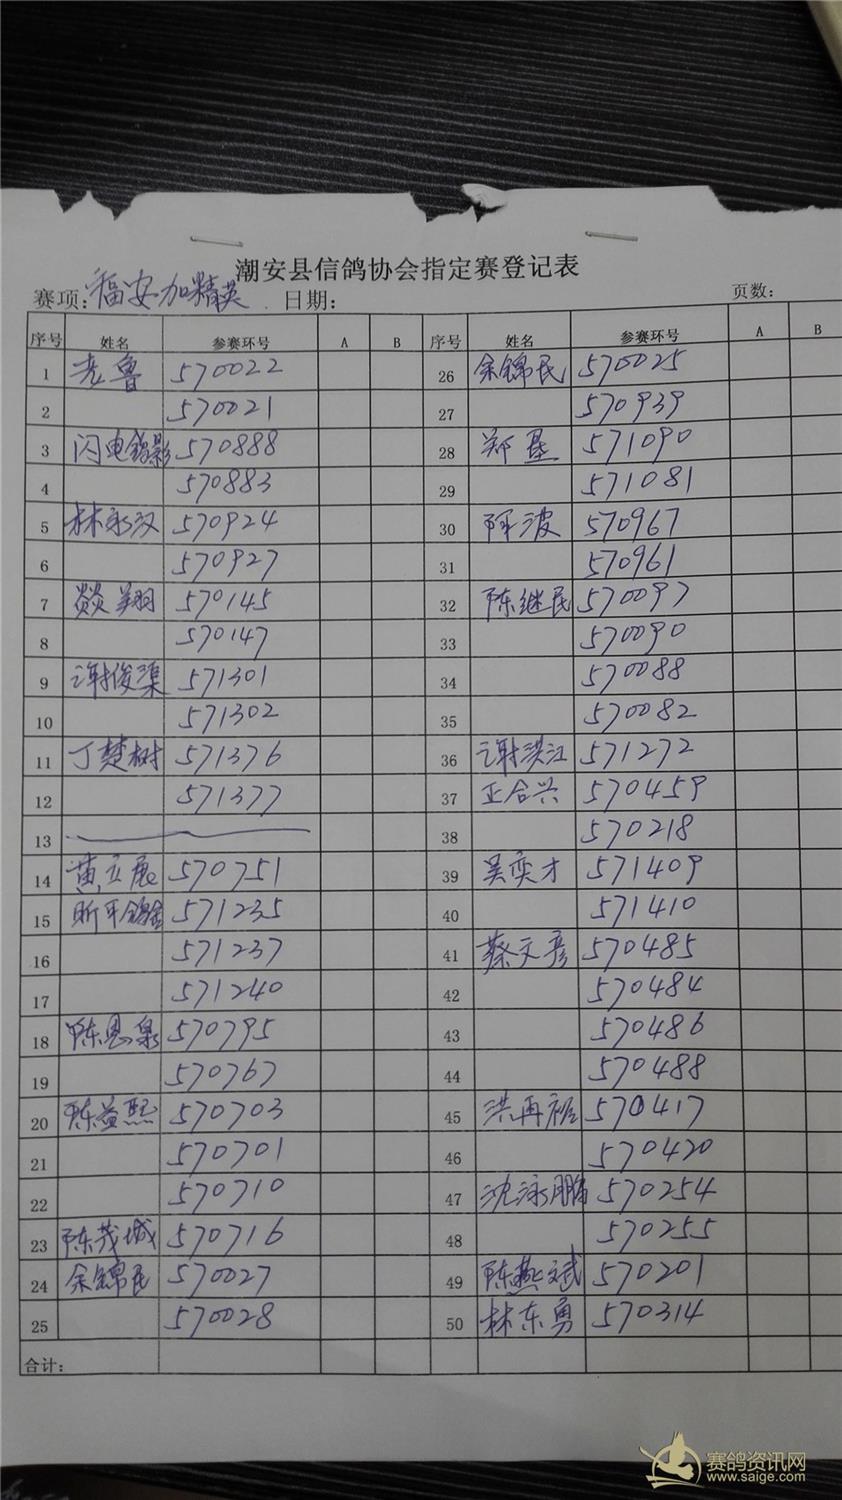 潮安县信鸽协会指定赛登记表
赛项: 福安加精英 日期: 页数:
序号 姓名 参赛环号 A B 序号 姓名 参赛环号 A B
1 老鲁 570022 26 余锦民 570025
2 570021 27 570939
3 闪电鸽影 570888 28 郑垦 571090
4 570883 29 571081
5 林永汉 570924 30 阿波 570967
6 570927 31 570961
7 燚翔 570145 32 陈继民 570097
8 570147 33 570090
9 谢俊渠 571301 34 570088
10 571302 35 570082
11 丁楚树 571376 36 谢洪江 571272
12 571377 37 正合兴 570459
13 38 570218
14 黄立展 570751 39 吴奕才 571409
15 昕平鸽舍 571235 40 571410
16 571237 41 蔡文彦 570485
17 571240 42 570484
18 陈恩泉 570795 43 570486
19 570767 44 570488
20 陈益熙 570703 45 洪再裕 570417
21 570701 46 570420
22 570710 47 沈泳鹏 570254
23 陈茂城 570716 48 570255
24 余锦民 570027 49 陈燕斌 570201
25 570028 50 林东勇 570314
合计:
赛鸽资讯网
www.saige.com